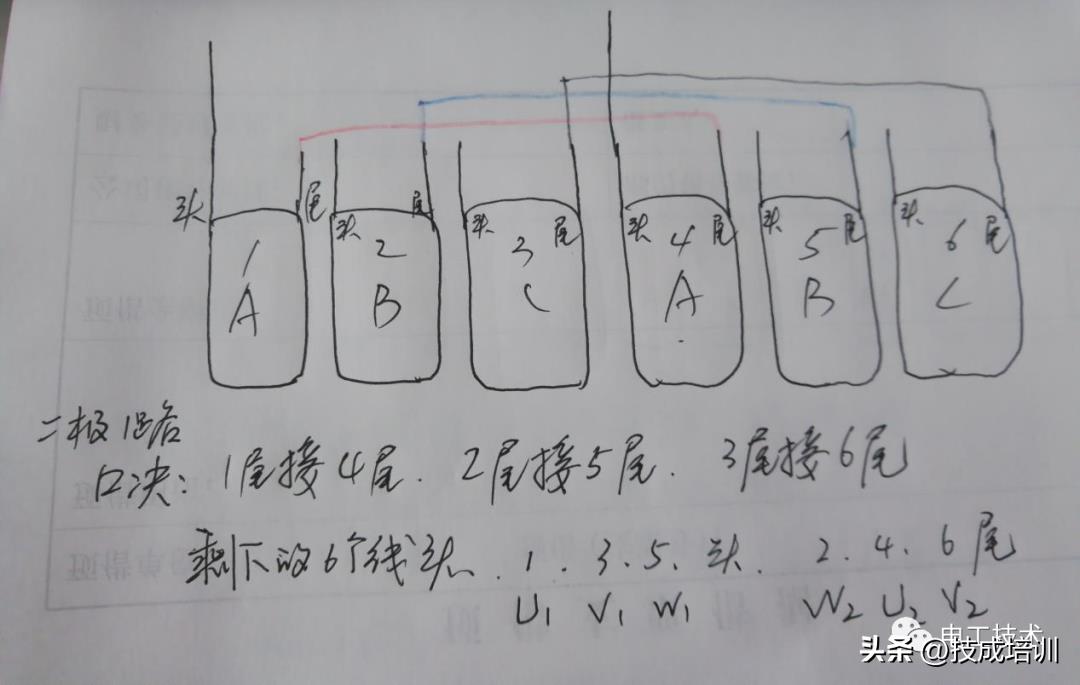 头 尾 头 尾 头 尾 头 尾 头 尾 头 尾
1 2 3 4 5 6
A B C A B C
二极1路
口决: 1尾接4尾. 2尾接5尾. 3尾接6尾
剩下的6个线头. 1. 3. 5. 头. 2. 4. 6尾
U1 V1 W1 W2 U2 V2
电工技术
头条 @技成培训